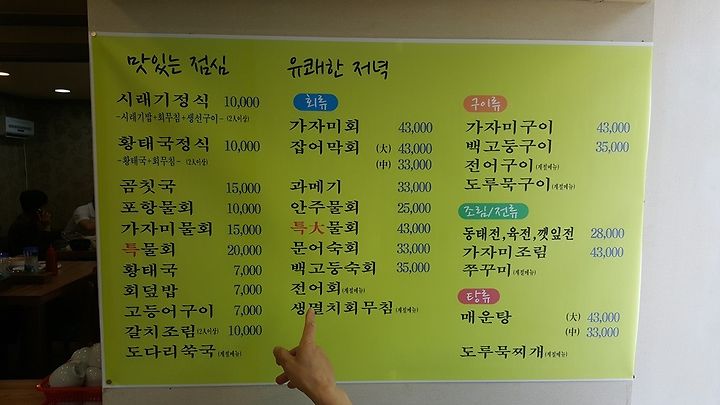 맛있는 점심
시래기정식 10,000
-시래기밥+회무침+생선구이- (2人이상)
황태국정식 10,000
-황태국+회무침- (2人이상)
곰칫국 15,000
포항물회 10,000
가자미물회 15,000
특물회 20,000
황태국 7,000
회덮밥 7,000
고등어구이 7,000
갈치조림(2人이상) 10,000
도다리쑥국(계절메뉴)
유쾌한 저녁
회류
가자미회 43,000
잡어막회 (大) 43,000
(中) 33,000
과메기 33,000
안주물회 25,000
특大물회 43,000
문어숙회 33,000
백고동숙회 35,000
전어회(계절메뉴)
생멸치회무침(계절메뉴)
구이류
가자미구이 43,000
백고동구이 35,000
전어구이(계절메뉴)
도루묵구이(계절메뉴)
조림/전류
동태전,육전,깻잎전 28,000
가자미조림 43,000
쭈꾸미(계절메뉴)
탕류
매운탕 (大) 43,000
(中) 33,000
도루묵찌개(계절메뉴)